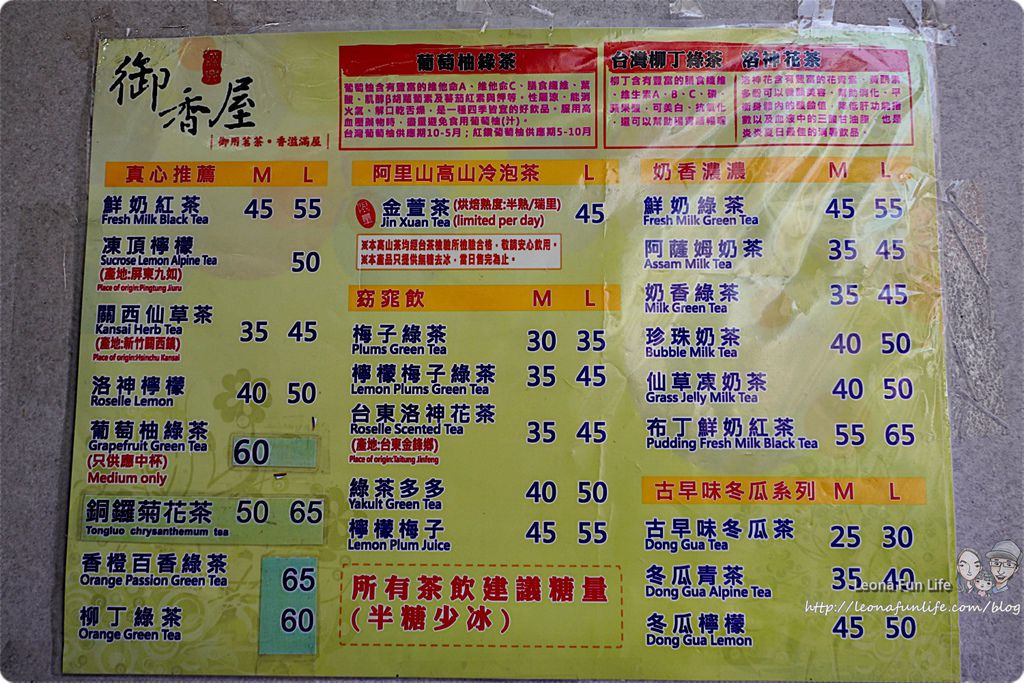 御香屋
御用茗茶•香溢滿屋
葡萄柚綠茶
葡萄柚含有豐富的維他命A、維他命C、膳食纖維、葉
酸、肌醇β胡蘿蔔素及蕃茄紅素與鉀等。性屬涼,能消
火氣、解口乾舌燥,是一種四季皆宜的好飲品。服用高
血壓藥物時,儘量避免食用葡萄柚(汁)。
台灣葡萄柚供應期10-5月;紅鑽葡萄柚供應期5-10月
台灣柳丁綠茶
柳丁含有豐富的膳食纖維
、維生素A、B、C、磷、
蘋果酸,可美白、抗氧化
,還可以幫助腸胃道蠕動
洛神花茶
洛神花含有豐富的花青素、黃酮素
多酚可以養顏美容、幫助消化、平
衡身體內的酸鹼值、降低肝功能指
數以及血液中的三酸甘油酯,也是
炎炎夏日最佳的消暑飲品。
真心推薦 M L
鮮奶紅茶 45 55
Fresh Milk Black Tea
凍頂檸檬 50
Sucrose Lemon Alpine Tea
(產地:屏東九如)
Place of origin:Pingtung Jiuru
關西仙草茶 35 45
Kansai Herb Tea
(產地:新竹關西鎮)
Place of origin:Hsinchu Kansai
洛神檸檬 40 50
Roselle Lemon
葡萄柚綠茶 60
Grapefruit Green Tea
(只供應中杯)
Medium only
銅鑼菊花茶 50 65
Tongluo chrysanthemum tea
香橙百香綠茶 65
Orange Passion Green Tea
柳丁綠茶 60
Orange Green Tea
阿里山高山冷泡茶 L
金萱茶(烘焙熟度:半熟/瑞里) 45
Jin Xuan Tea (limited per day)
※本高山茶均經台茶檢驗所檢驗合格,敬請安心飲用。
※本產品只提供無糖去冰,當日售完為止。
窈窕飲 M L
梅子綠茶 30 35
Plums Green Tea
檸檬梅子綠茶 35 45
Lemon Plums Green Tea
台東洛神花茶 35 45
Roselle Scented Tea
(產地:台東金鋒鄉)
Place of origin:Taitung Jinfong
綠茶多多 40 50
Yakult Green Tea
檸檬梅子 45 55
Lemon Plum Juice
所有茶飲建議糖量
(半糖少冰)
奶香濃濃 M L
鮮奶綠茶 45 55
Fresh Milk Green Tea
阿薩姆奶茶 35 45
Assam Milk Tea
奶香綠茶 35 45
Milk Green Tea
珍珠奶茶 40 50
Bubble Milk Tea
仙草凍奶茶 40 50
Grass Jelly Milk Tea
布丁鮮奶紅茶 55 65
Pudding Fresh Milk Black Tea
古早味冬瓜系列 M L
古早味冬瓜茶 25 30
Dong Gua Tea
冬瓜青茶 35 40
Dong Gua Alpine Tea
冬瓜檸檬 45 50
Dong Gua Lemon
LeonaFun Life
http://leonafunlife.com/blog